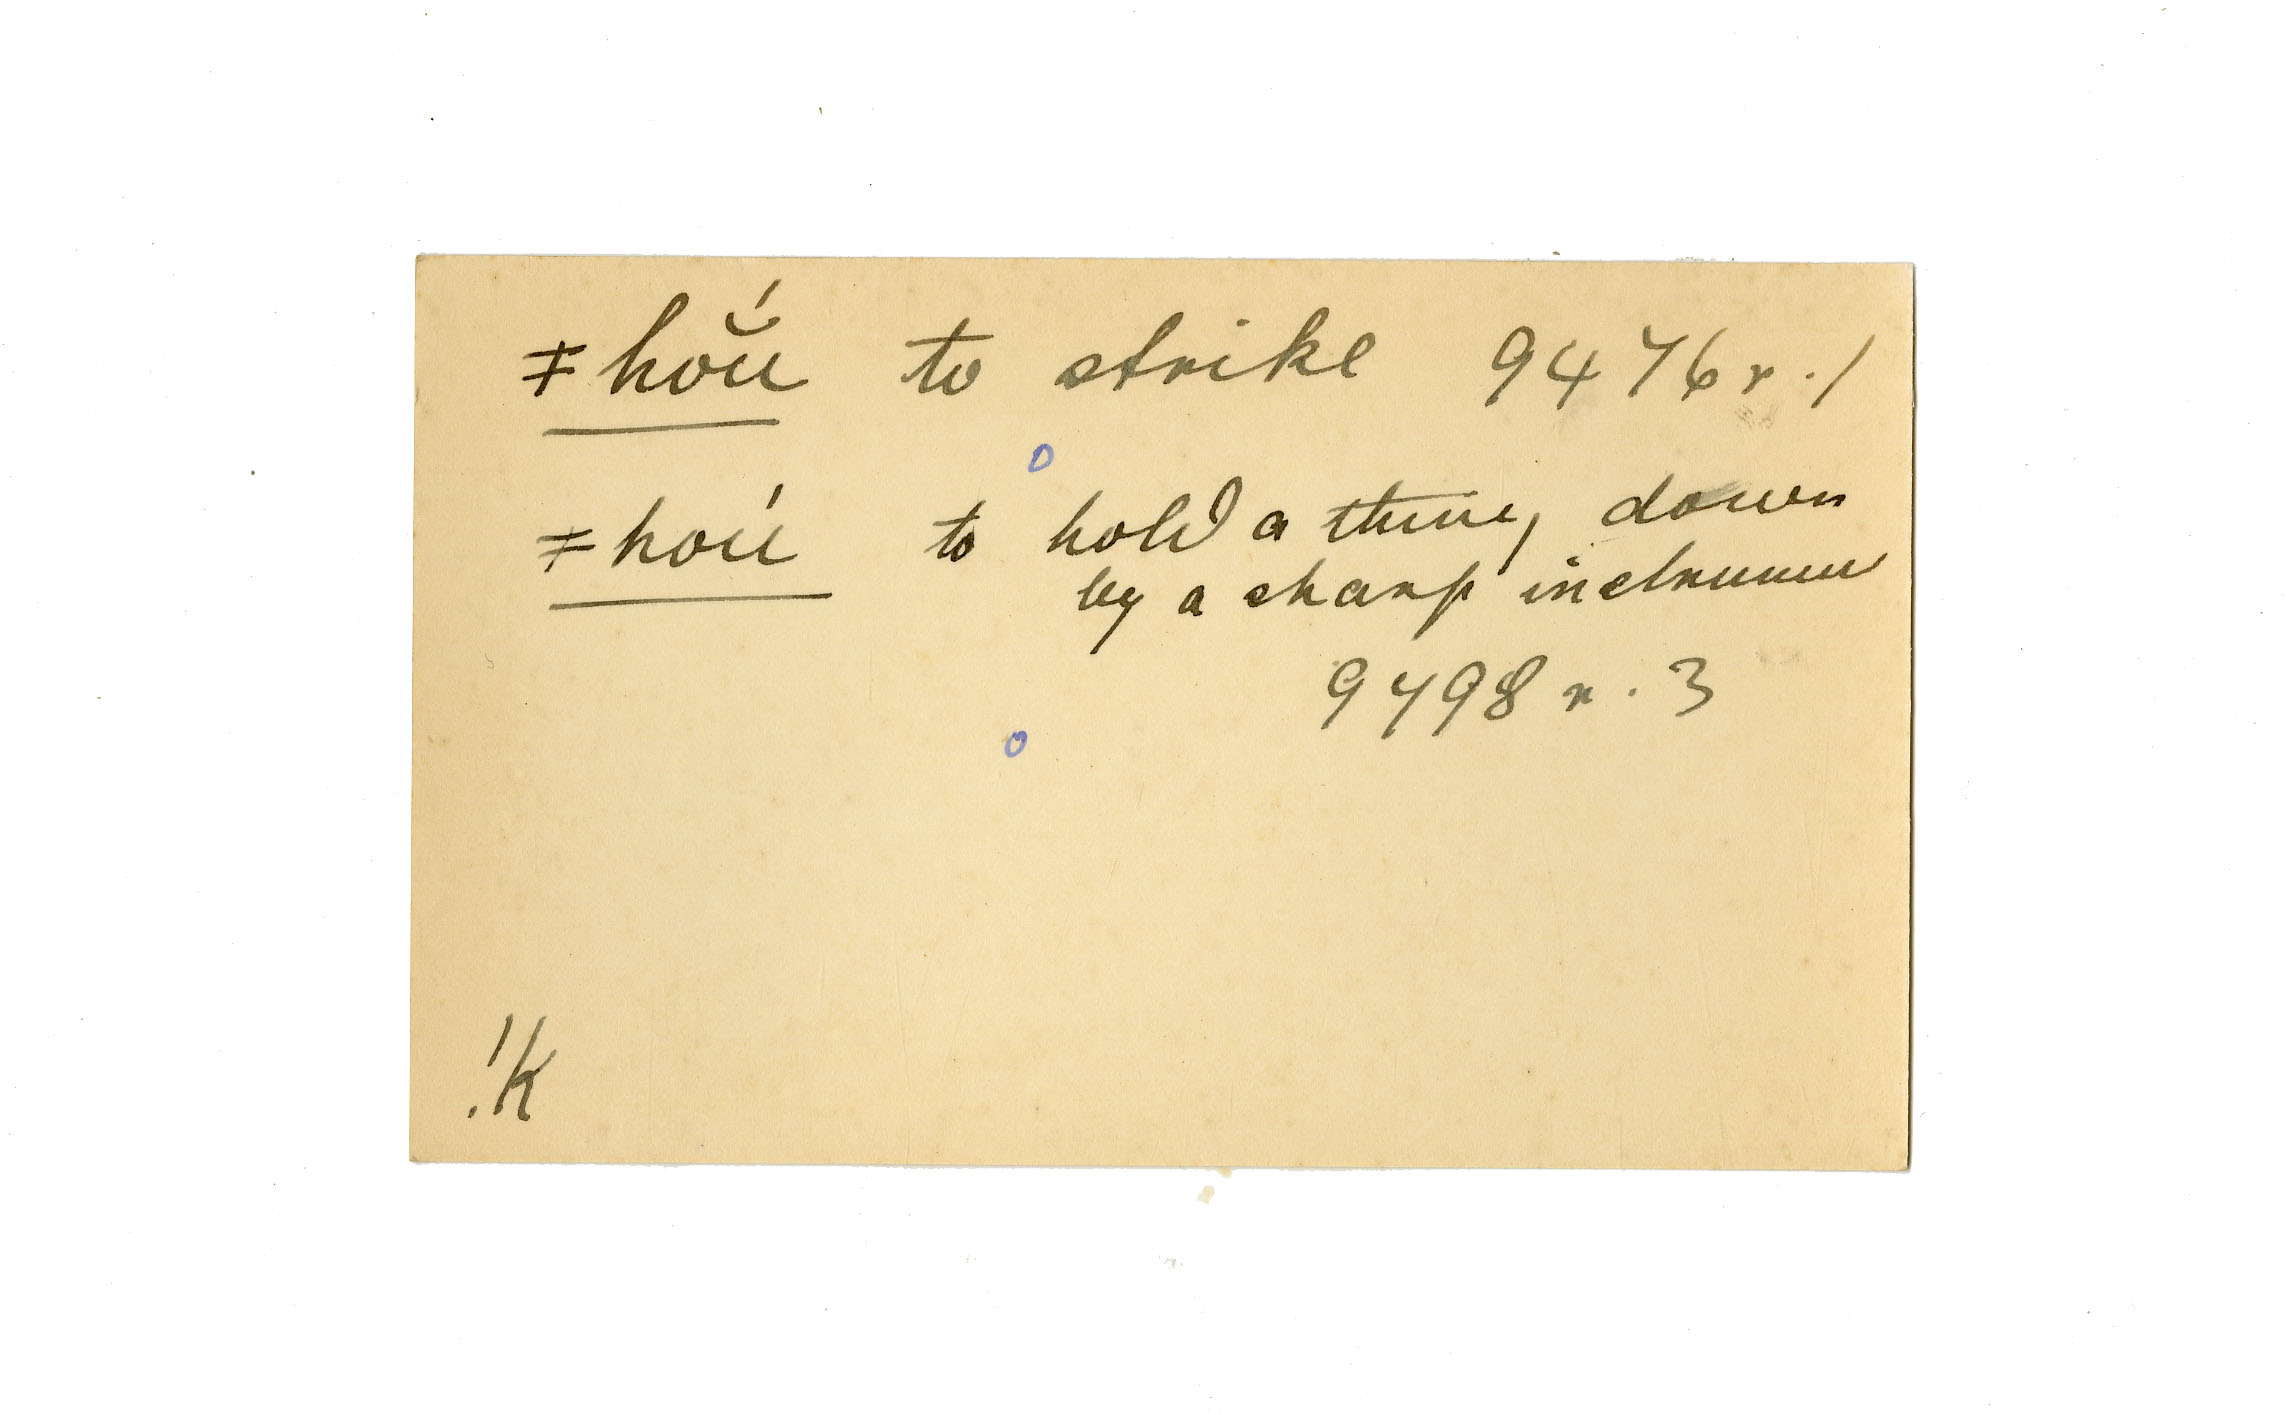 ǂhoŭ́ to strike 9476 r. 1
ǂhoú to hold a thing down
by a sharp instrument
9498 r. 3
!k